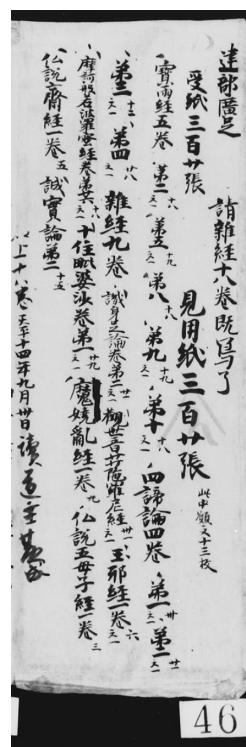 建部廣足 請雜経十八巻既写了
受紙三百廿張 見用紙三百廿張 此中願文十三枚
寶雨経五巻 第二十八 第五十九 第八十八 第九十九 第十十八 四諦論四巻 第一卅 第二廿一
第三十三 第四十八 雜経九巻 誠身 論巻第二廿 観世音菩薩 経 玉耶経一巻六
摩訶般若波羅蜜経巻第廿六十八 十住毗婆沙巻第一廿九 魔嬈乱経一巻九 仏説五母子経一巻三
仏説齋経一巻五 誠實論第二十五
以上十八巻 天平十四年九月卅日 讀 道主
46